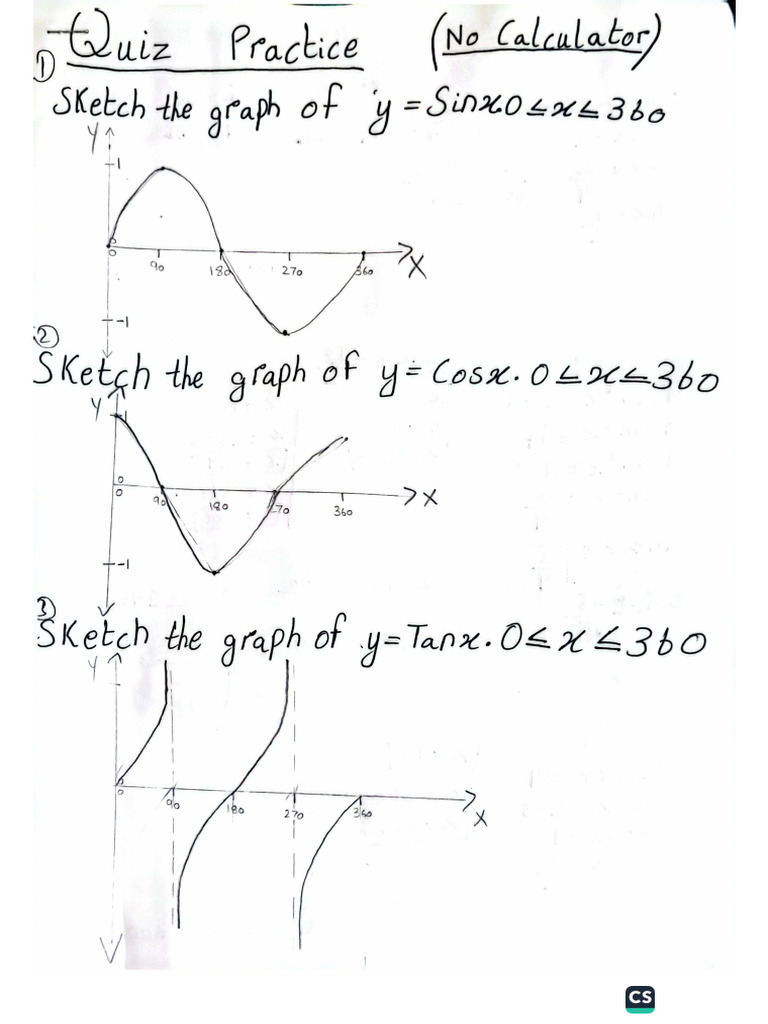 Quiz Practice (No Calculator)
①
Sketch the graph of y = Sinx.0≤x≤360
Y
1
0
0
90
180
270
360
X
-1
②
Sketch the graph of y = Cosx. 0≤x≤360
Y
1
0
0
90
180
270
360
X
-1
③
Sketch the graph of y=Tanx. 0≤x≤360
Y
0
90
180
270
360
X
CS